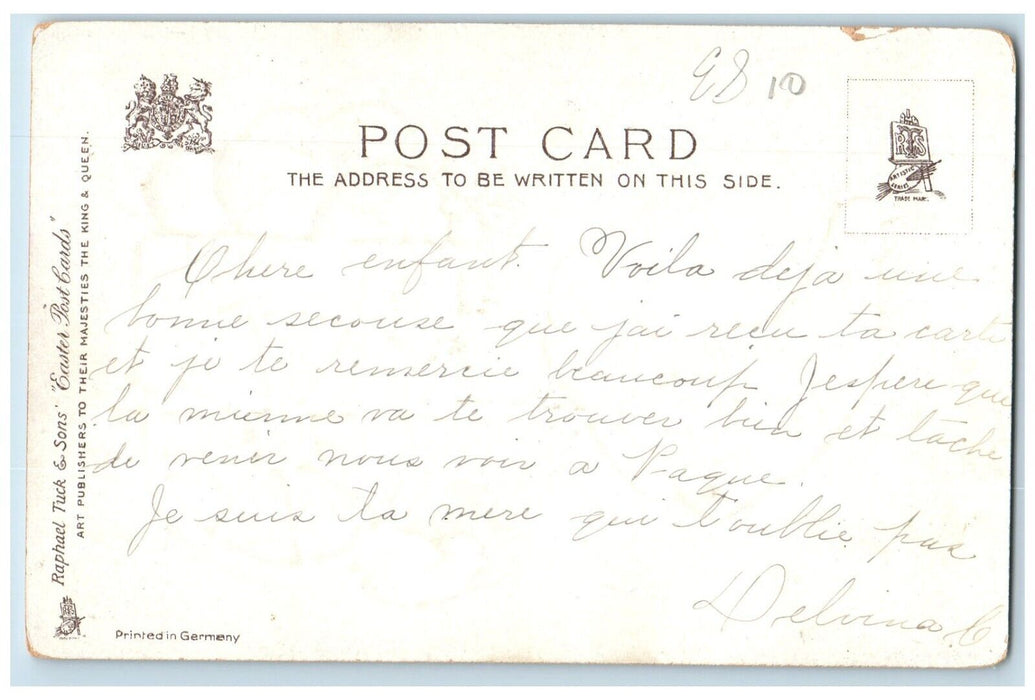 E8 10
POST CARD
THE ADDRESS TO BE WRITTEN ON THIS SIDE.
RTS
ARTISTIC
SERIES
TRADE MARK.
Raphael Tuck & Sons' "Easter Post Cards"
ART PUBLISHERS TO THEIR MAJESTIES THE KING & QUEEN.
Chere enfant. Voila deja une
bonne secouse que jai recu ta carte
et je te remercie beaucoup Jespere que
la mienne va te trouver bien et tâche
de venir nous voir a Paque.
Je suis ta mere qui t oublie pas
Delvina C.
Printed in Germany